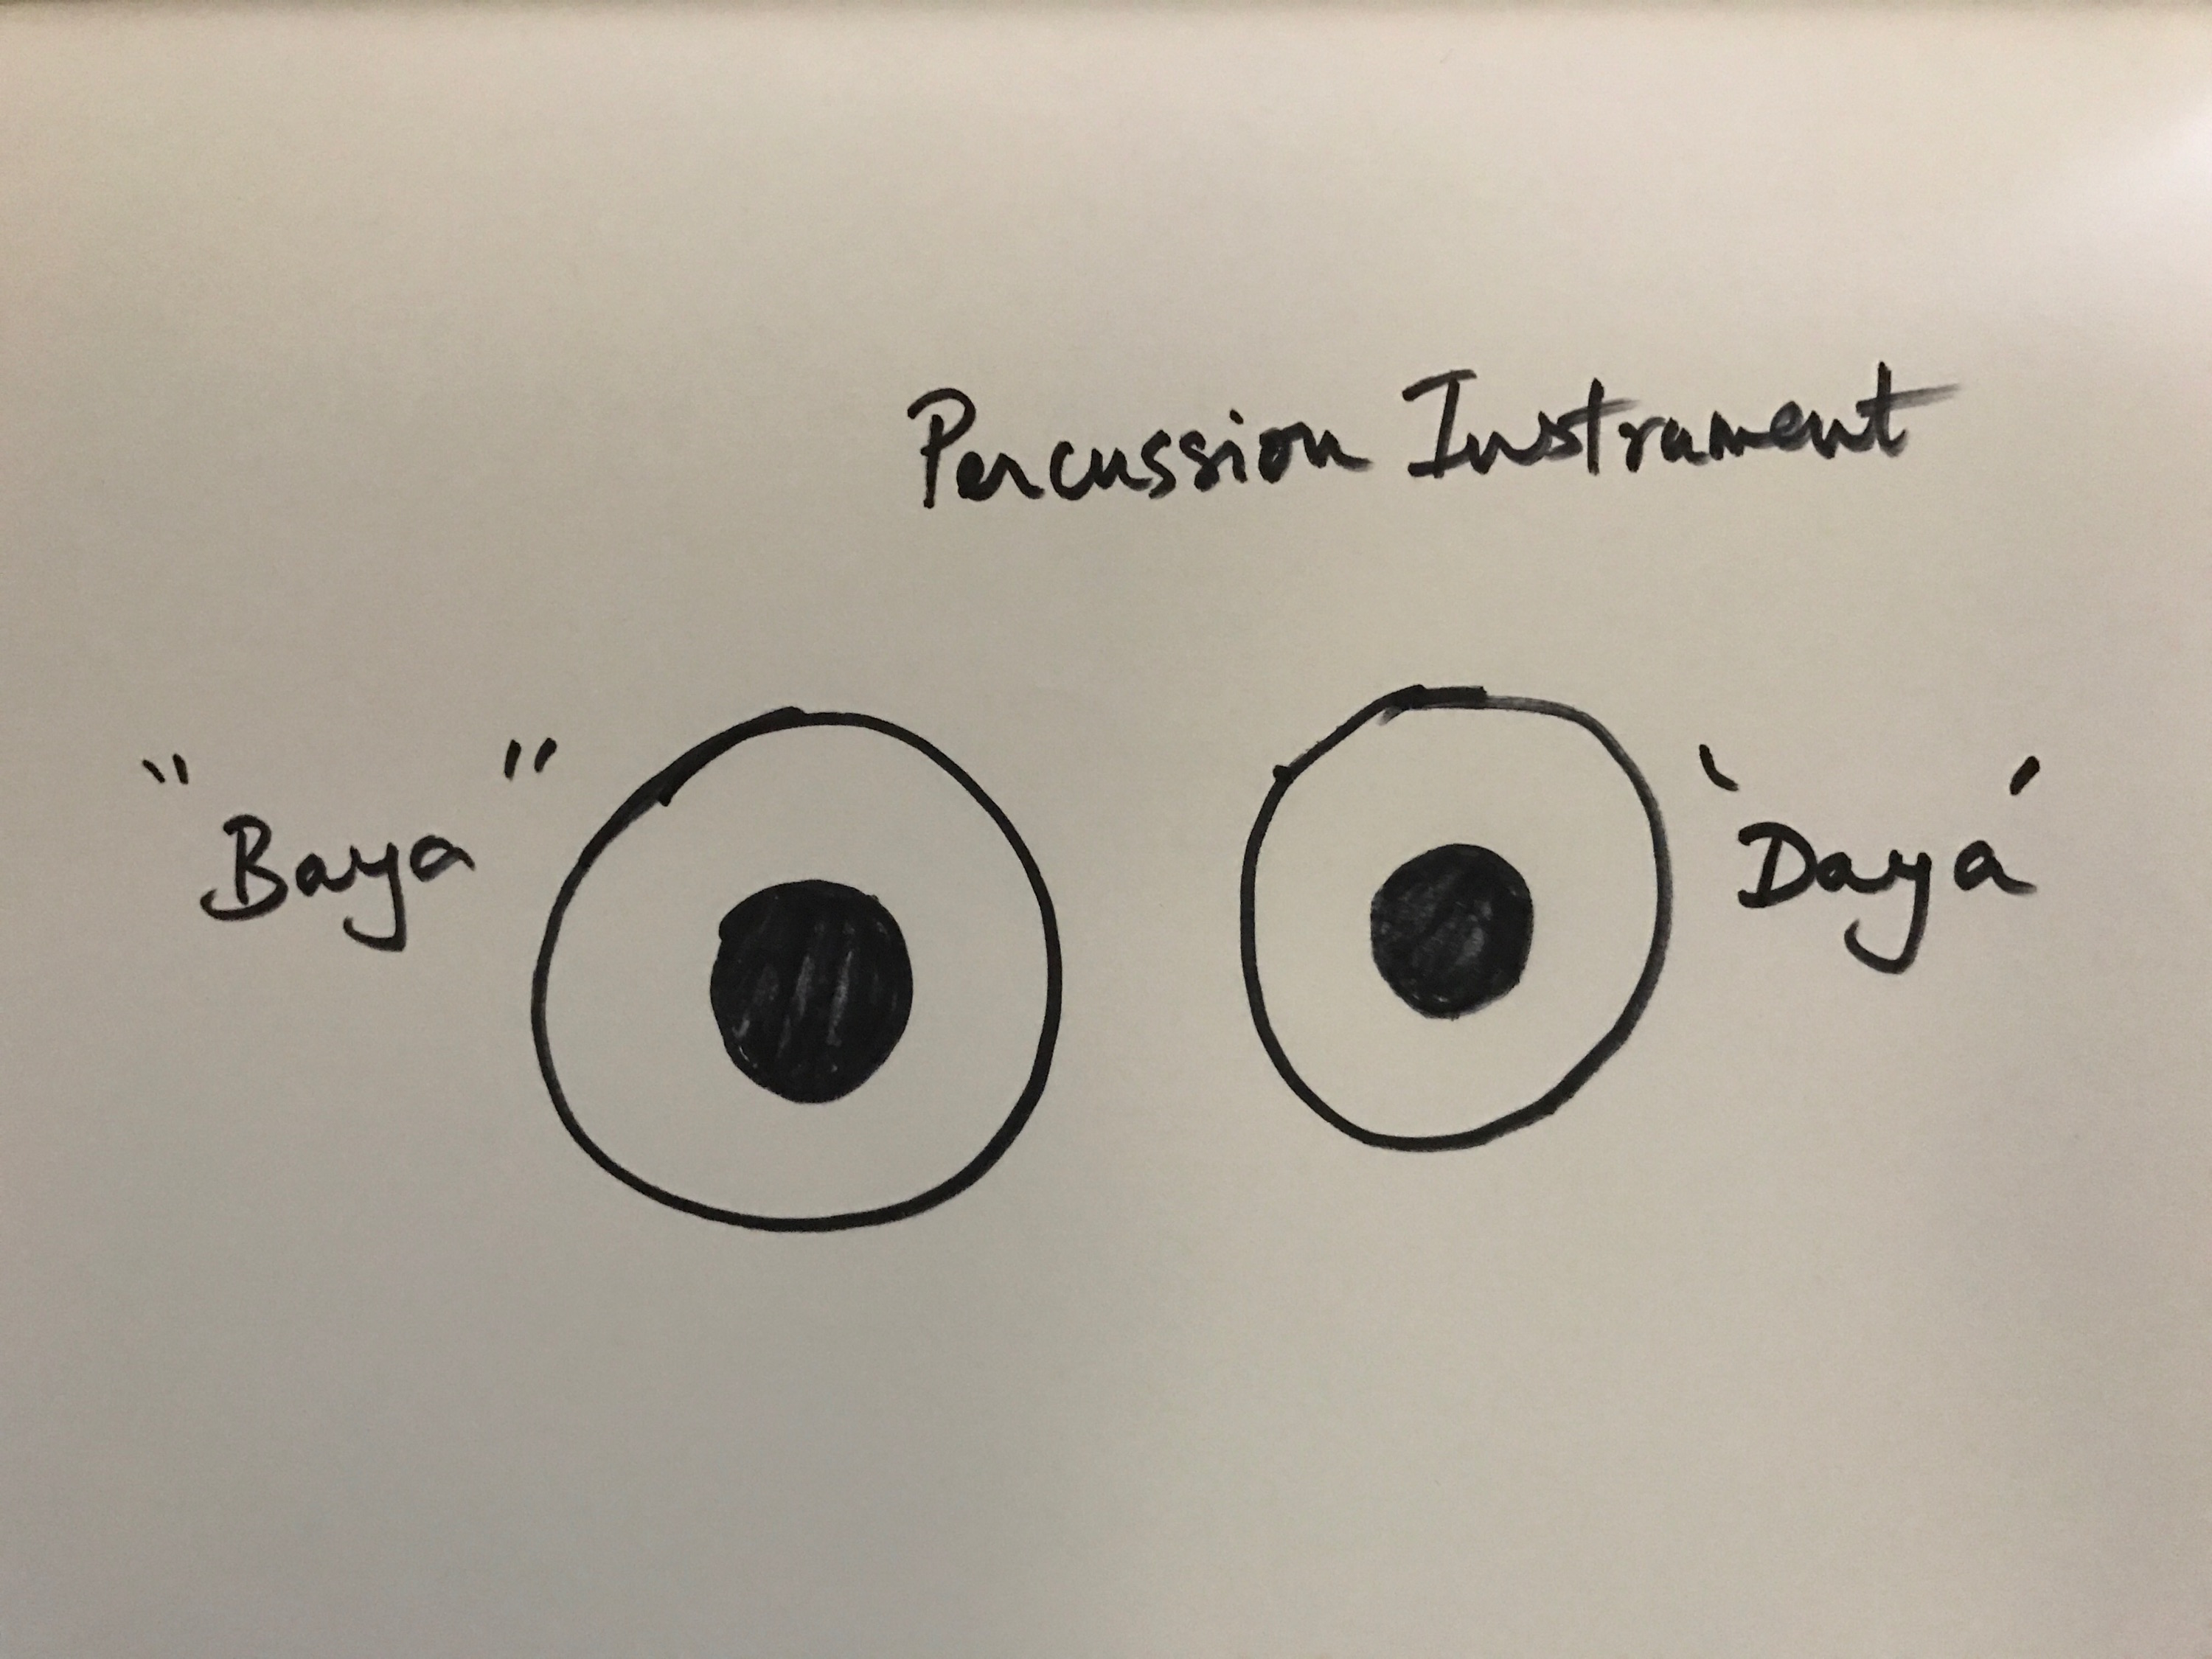 Percussion Instrument
"Baya"
'Daya'